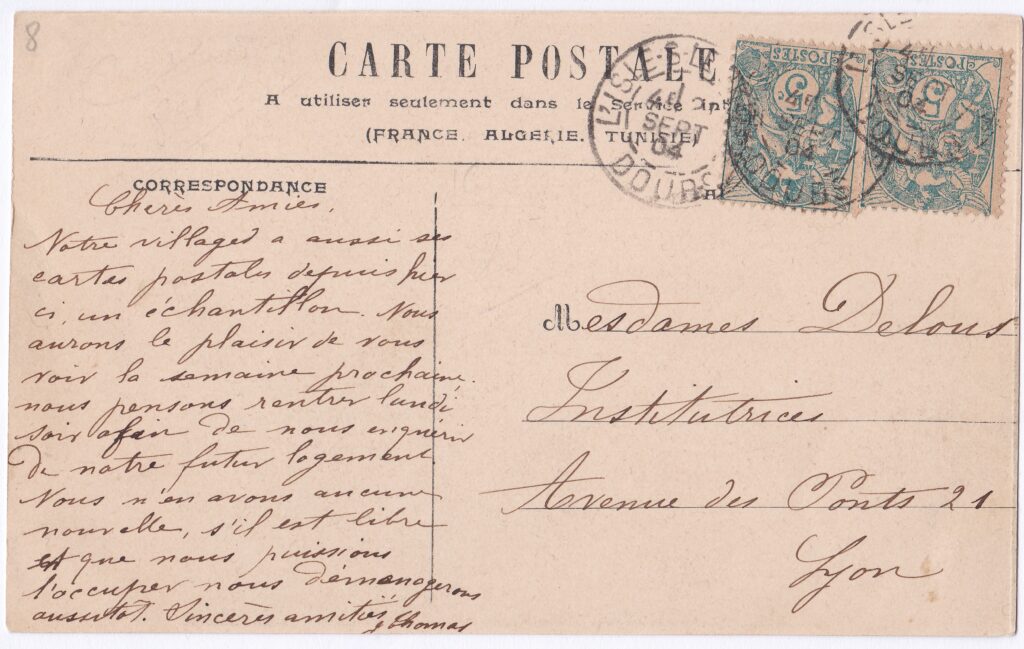 8
CARTE POSTALE
A utiliser seulement dans le Service int
(FRANCE, ALGERIE, TUNISIE)
L'ISLE-S-LE
4E
SEPT
04
DOUBS
POSTES
5
04
DOUBS
POSTES
5
04
DOUBS
CORRESPONDANCE
Cherès Amies,
Notre villaged a aussi ses
cartes postales depuis hier
ci, un échantillon. Nous
aurons le plaisir de vous
voir la semaine prochaine.
nous pensons rentrer lundi
soir afin de nous enquérir
de notre futur logement.
Nous n'en avons aucune
nouvelle, s'il est libre
et que nous puissions
l'occuper nous déménagerons
aussitot. Sincères amitiés
Thomas
Mesdames Delous
Institutrices
Avenue des Ponts 21
Lyon